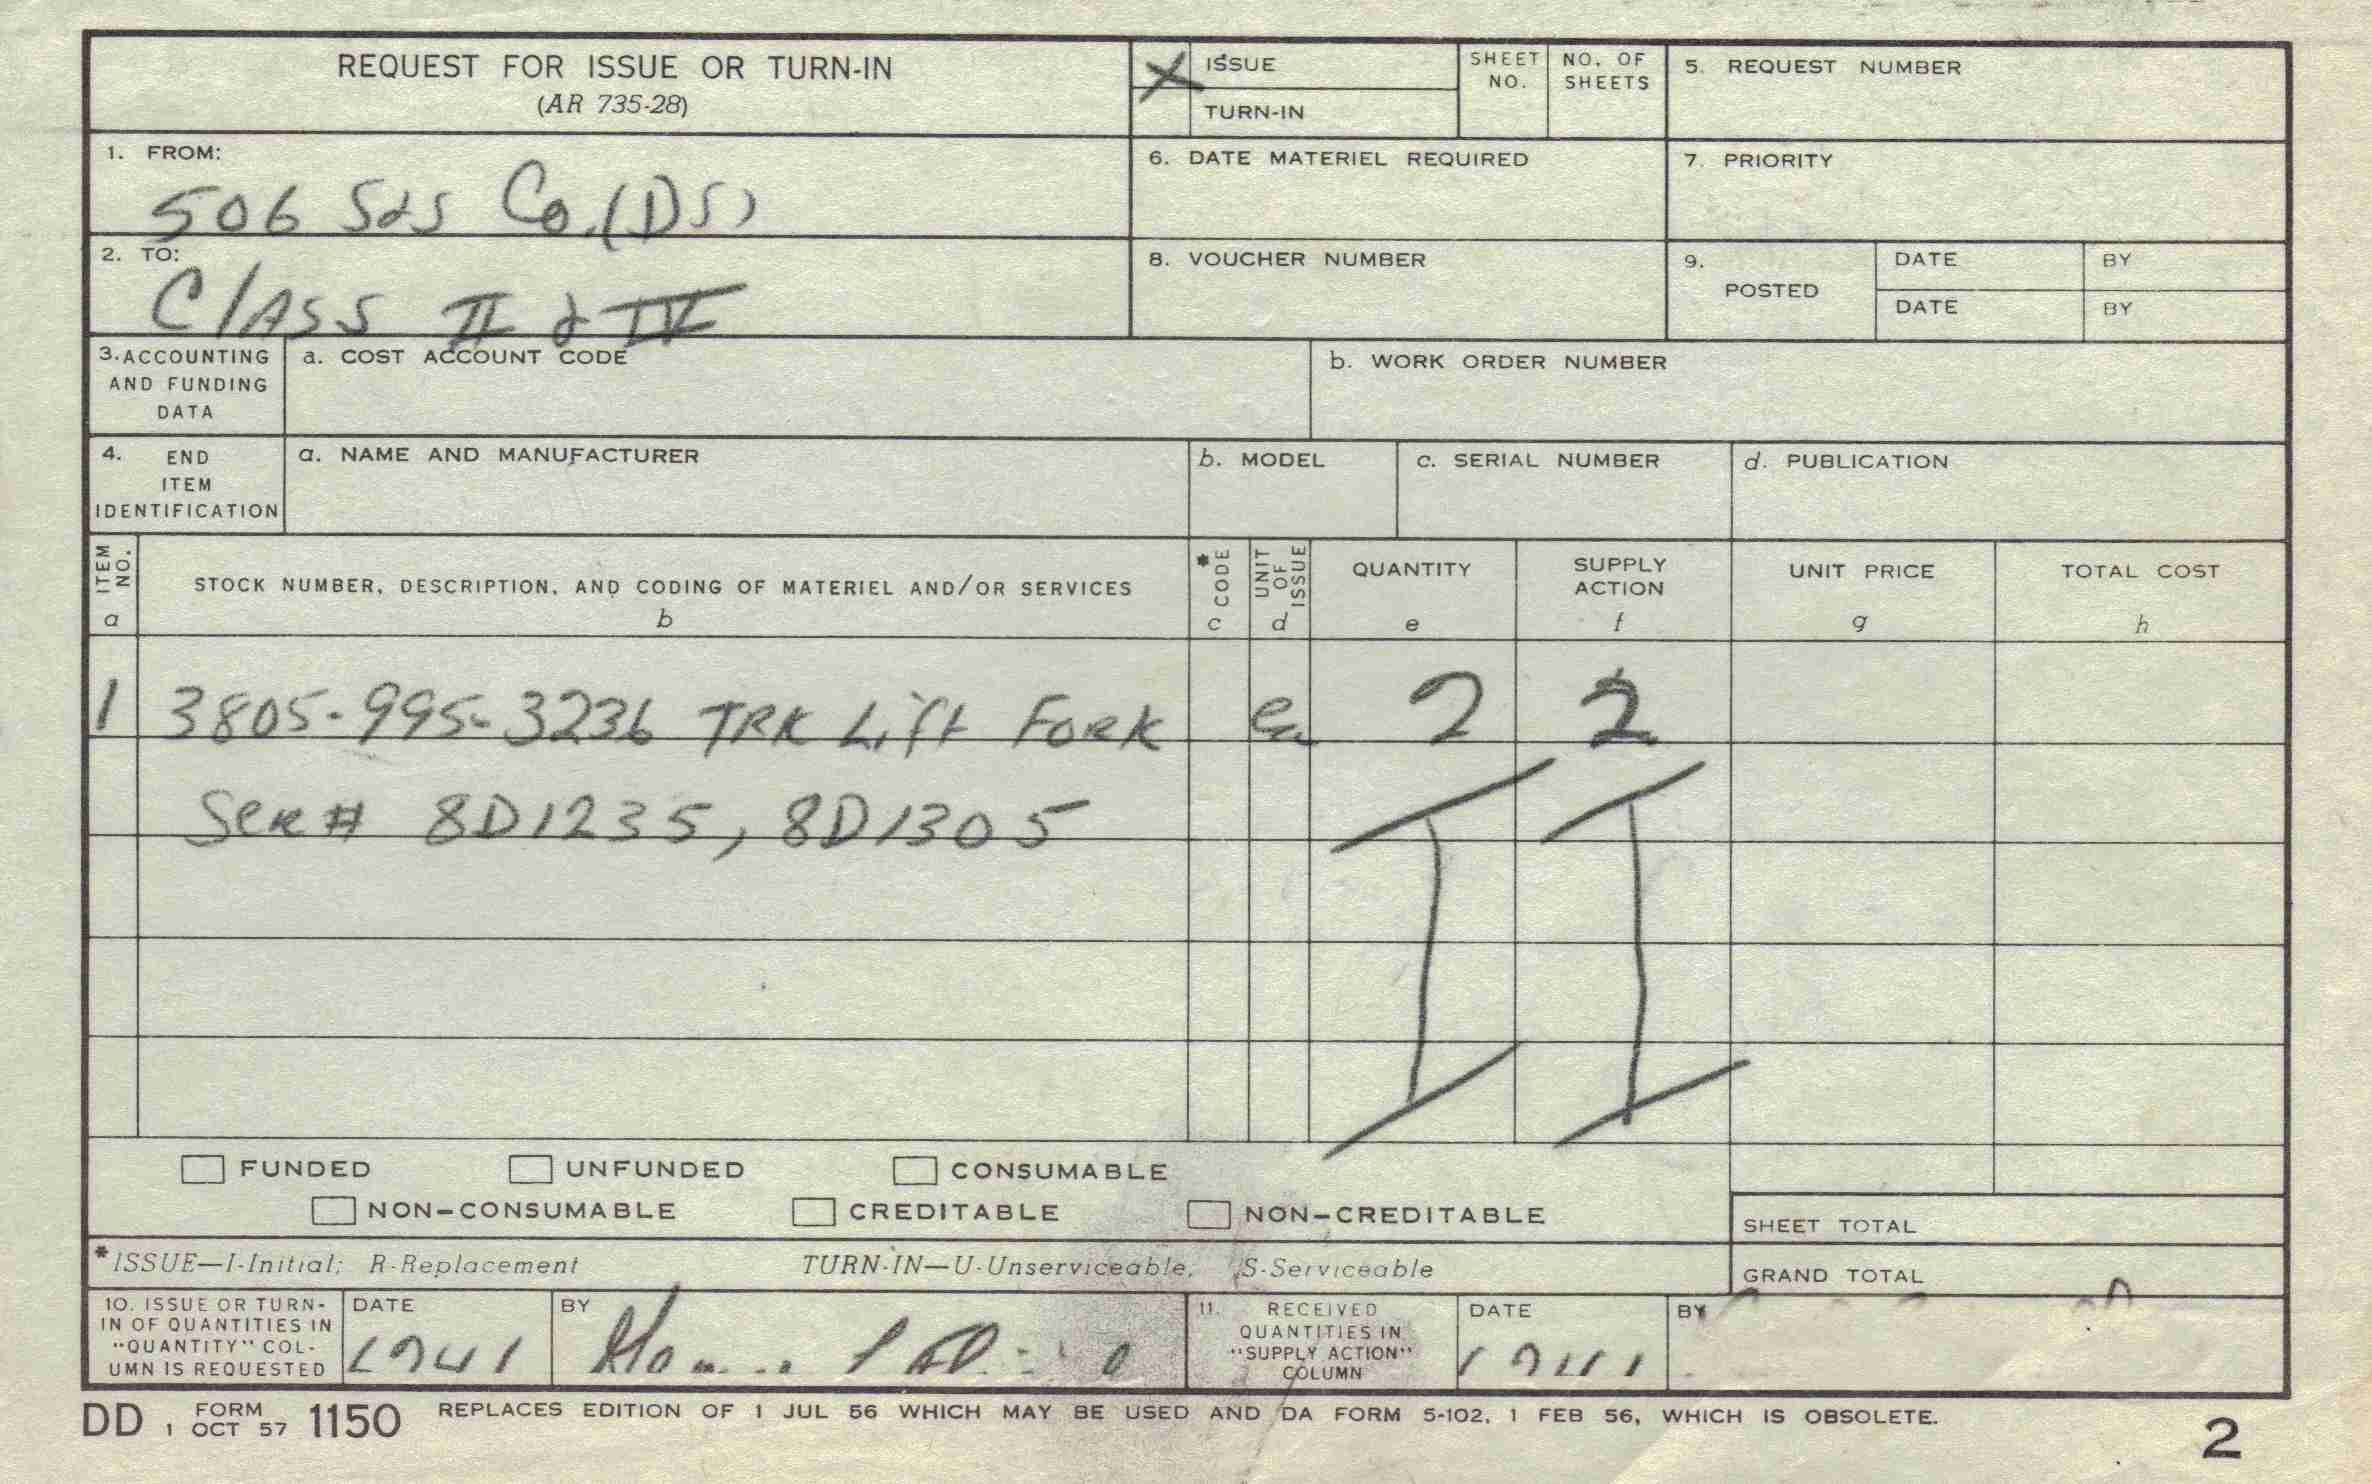 REQUEST FOR ISSUE OR TURN-IN
(AR 735-28)
X ISSUE
TURN-IN
SHEET NO.
NO. OF SHEETS
5. REQUEST NUMBER
1. FROM:
506 S&S Co. (DS)
6. DATE MATERIEL REQUIRED
7. PRIORITY
2. TO:
Class II & IV
8. VOUCHER NUMBER
9. POSTED
DATE
BY
DATE
BY
3. ACCOUNTING AND FUNDING DATA
a. COST ACCOUNT CODE
b. WORK ORDER NUMBER
4. END ITEM IDENTIFICATION
a. NAME AND MANUFACTURER
b. MODEL
c. SERIAL NUMBER
d. PUBLICATION
ITEM NO. a
STOCK NUMBER, DESCRIPTION, AND CODING OF MATERIEL AND/OR SERVICES b
* CODE c
UNIT OF ISSUE d
QUANTITY e
SUPPLY ACTION f
UNIT PRICE g
TOTAL COST h
1 3805-995-3236 TRK Lift Fork ea 2 2
Ser# 8D1235, 8D1305
FUNDED UNFUNDED CONSUMABLE
NON-CONSUMABLE CREDITABLE NON-CREDITABLE
SHEET TOTAL
*ISSUE—I-Initial; R-Replacement TURN-IN—U-Unserviceable, S-Serviceable
GRAND TOTAL
10. ISSUE OR TURN-
IN OF QUANTITIES IN
"QUANTITY" COL-
UMN IS REQUESTED
DATE
BY
11. RECEIVED
QUANTITIES IN
"SUPPLY ACTION"
COLUMN
DATE
BY
DD FORM 1 OCT 57 1150 REPLACES EDITION OF 1 JUL 56 WHICH MAY BE USED AND DA FORM 5-102, 1 FEB 56, WHICH IS OBSOLETE.
2